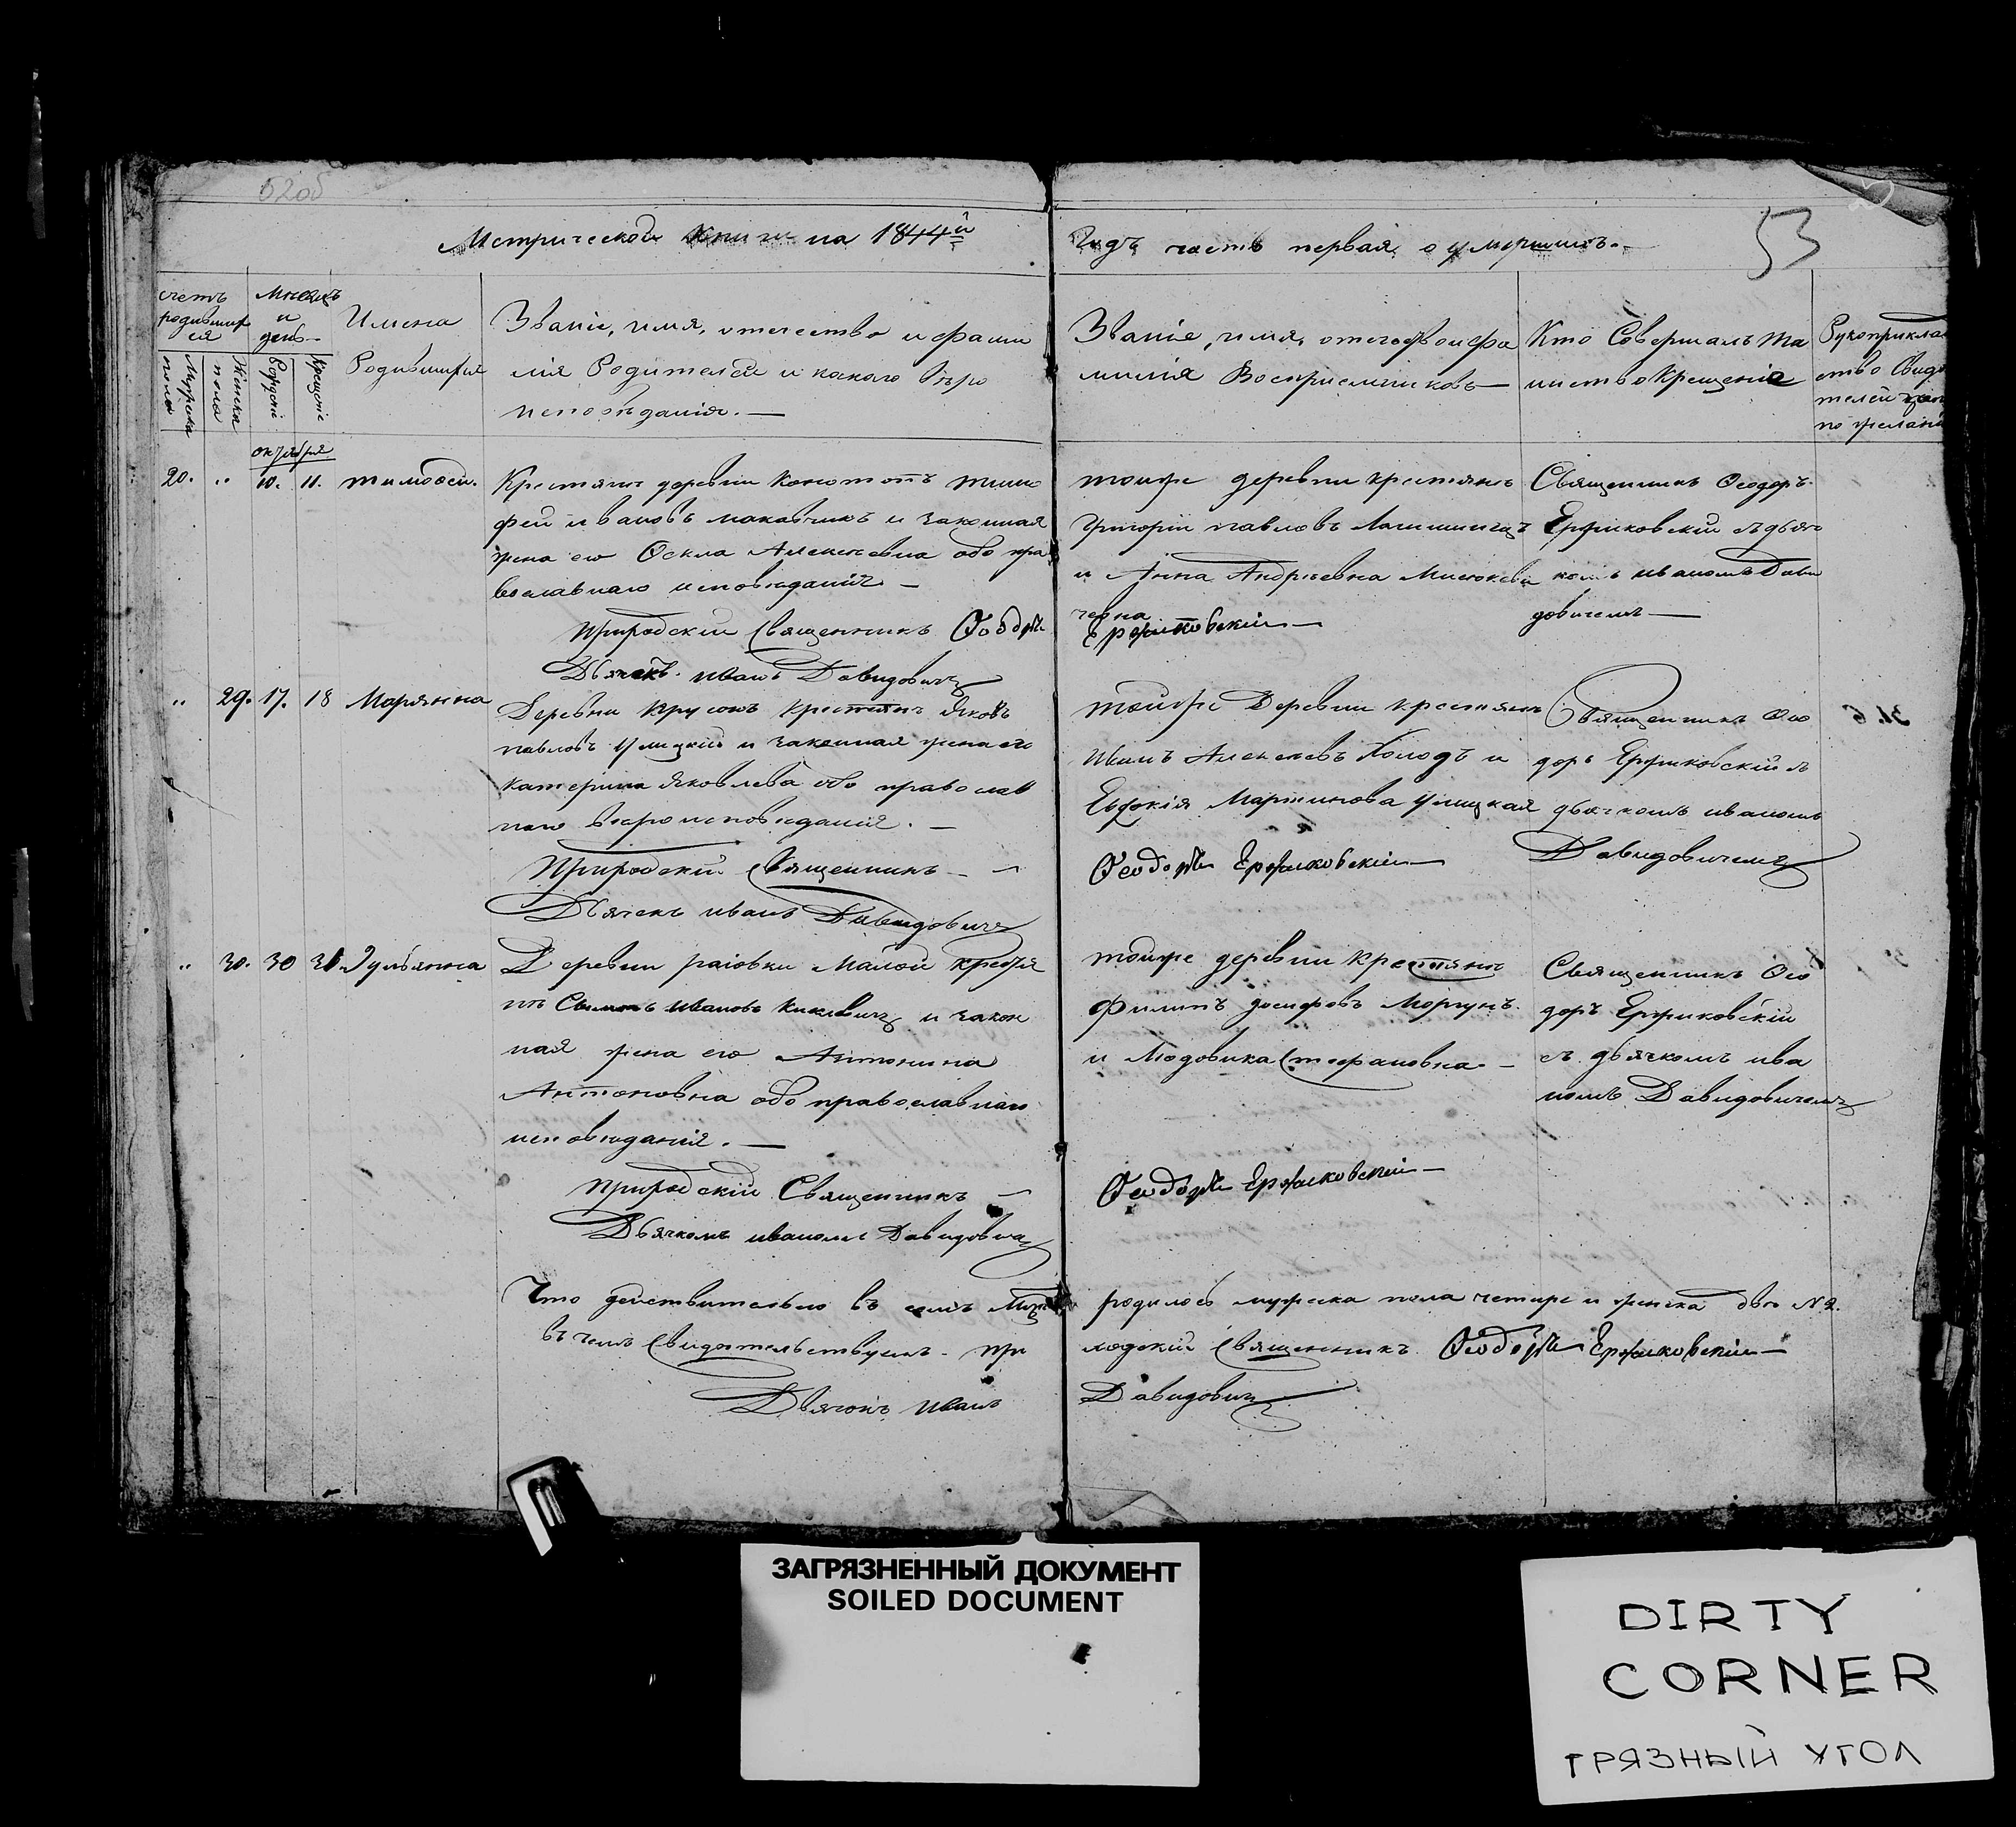 52об
53
Метрической книги на 1844й
Годъ часть первая о умершихъ.
счетъ родившихся
Мужеска пола
Женска пола
Месяцъ и день
Рождение
Крещение
Имена Родившихся
Званіе, имя, отечество и фами
лія Родителей и какого веро
исповеданія.
Званіе, имя, отечество и фа
милия Восприемниковъ
Кто Совершалъ Та
инство Крещеніе
Рукоприкла
ство Свиде
телей
по желани
октября
20. " 10. 11. тимофеи.
Крестянъ деревни Конотопъ тимо
фей ивановъ макавчикъ и законная
жена его Фекла Алексеевна обо пра
вославнаго исповеданія
Священникъ Феодоръ
Дьячекъ иванъ Давидовичъ
тоиже деревни крестянъ
Григорій павловъ
и Анна Андреевна
Ержиковскій
Священникъ Феодоръ
Ержиковскій съ дьяч
комъ иваномъ Дави
довичемъ
" 29. 17. 18 Марянна
Деревни крестянъ Яковъ
павловъ Улицкій и законная жена его
катерина Яковлева обо православ
наго вероисповеданія.
Священникъ
Дьячекъ иванъ Давидовичъ
тойже Деревни крестянъ
иванъ Алексеевъ Холодъ и
Евдокія Мартинова Улицкая
Феодоръ Ержиковскій
Священникъ Фео
доръ Ержиковскій съ
дьячкомъ иваномъ
Давидовичемъ
" 30. 30 31 Іульянна
Деревни раіовки Малой крестя
нъ Семенъ ивановъ и закон
ная жена его Антонина
Антоновна обо православнаго
исповеданія.
Священникъ
Дьячкомъ иваномъ Давидовичъ
тойже деревни крестянъ
Филипъ Моргунъ
и Людовика Стефановна
Феодоръ Ержиковскій
Священникъ Фео
доръ Ержиковскій
съ дьячкомъ ива
номъ Давидовичемъ
Что действительно въ семъ
родилось мужеска пола четире и женска две
въ чемъ Свидетельствуемъ
Священникъ Феодоръ Ержиковскій
Дьячокъ иванъ
Давидовичъ
ЗАГРЯЗНЕННЫЙ ДОКУМЕНТ
SOILED DOCUMENT
DIRTY
CORNER
ГРЯЗНЫЙ УГОЛ